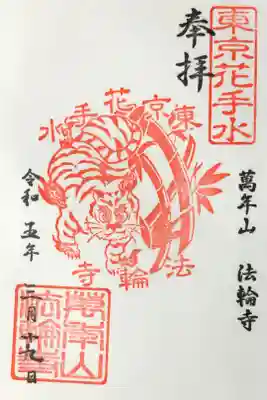 東京花手水
奉拝
東京花手水
法輪寺
萬年山 法輪寺
令和五年 三月十九日
萬年山
法輪寺